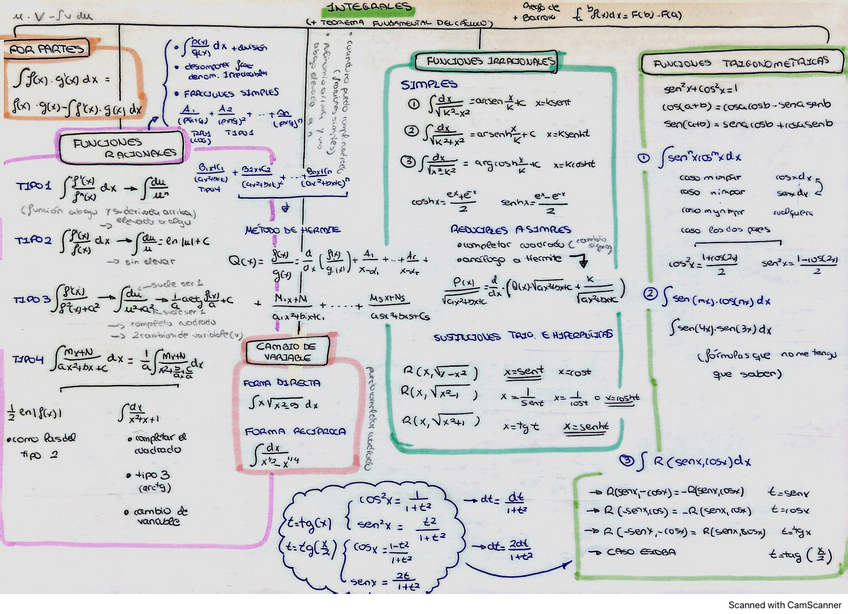 INTEGRALES
(+ TEOREMA FUNDAMENTAL DEL CÁLCULO)
Regla de
+ Barrow ∫ₐᵇ f(x)dx = F(b) - F(a)
u · v - ∫v du
POR PARTES
∫f(x) · g'(x) dx =
f(x) · g(x) - ∫f'(x) · g(x) dx
• ∫D(x)/q(x) dx → división
• descomponer
denom. irreducibles
• FRACIONES SIMPLES
TIPO 1
(LOG)
TIPO 1
TIPO4
• cuadno puedo cumpl cuadrado
FUNCIONES
RACIONALES
TIPO 1 ∫f'(x)/fⁿ(x) dx → ∫du/uⁿ
(función abajo y su derivada arriba)
→ elevado a algo
TIPO 2 ∫f'(x)/f(x) dx → ∫du/u = ln|u| + C
→ sin elevar
TIPO 3 ∫f'(x)/f²(x)+c² → ∫du/u²+a² → 1/a arctg f(x)/a + C
suele ser 1
suele ser 1
→ completo cuadrado
→ 2 cambios de variable (v)
TIPO4 ∫Mx+N/ax²+bx+c dx = 1/a ∫Mx+N/x²+b/a x+c/a dx
1/2 ln|f(x)|
• como las del
tipo 2
∫dx/x²+x+1
• completar el
cuadrado
• tipo 3
(arctg)
• cambio de
variable
MÉTODO DE HERMITE
Q(x) = f(x)/g(x) = d/dx (f(x)/g(x)) + A₁/x-α₁ + ... + Ar/x-αr
+ M₁x+N₁/a₁x²+b₁x+c₁ + ...... + Msx+Ns/asx²+bsx+cs
CAMBIO DE
VARIABLE
FORMA DIRECTA
FORMA RECÍPROCA
∫dx/x^1/2 - x^1/4
puedo completar cuadrado
FUNCIONES IRRACIONALES
SIMPLES
① ∫dx/√k²-x² = arcsen x/k x=ksent
② ∫dx/√k²+x² = arcsenh x/k + C x=ksenht
③ ∫dx/√x²-k² = argcosh x/k + C x=kcosht
coshx = eˣ+e⁻ˣ/2 senhx = eˣ-e⁻ˣ/2
REDUCIBLES A SIMPLES
• completar cuadrado (cambio
signo)
• análogo a Hermite
P(x)/√ax²+bx+c = d/dx (Q(x)·√ax²+bx+c + K/√ax²+bx+c)
SUSTITUCIONES TRIG. E HIPERBÓLICAS
R(x, √1-x²) x=sent x=cost
R(x, √x²-1) x=1/sent x=1/cost o x=cosht
R(x, √x²+1) x=tgt x=senht
FUNCIONES TRIGONOMÉTRICAS
sen²x+cos²x=1
cos(a+b)=cosacosb-senasenb
sen(a+b)=senacosb+cosasenb
① ∫senⁿxcosᵐxdx
caso m impar cosxdx
caso n impar senxdx
caso m y n impar cualquiera
caso los dos pares
cos²x=1+cos(2x)/2 sen²x=1-cos(2x)/2
② ∫sen(mx)·cos(nx)dx
∫sen(4x)·sen(3x)dx
(fórmulas que no me tengo
que saber)
③ ∫R(senx,cosx)dx
→ R(senx,-cosx)=-R(senx,cosx) t=senx
→ R(-senx,cosx)=-R(senx,cosx) t=cosx
→ R(-senx,-cosx)=R(senx,cosx) t=tgx
→ CASO ESCOBA t=tag(x/2)
t=tg(x) { cos²x = 1/1+t² → dt = dt/1+t²
sen²x = t²/1+t²
t=tg(x/2) { cosx = 1-t²/1+t² → dt = 2dt/1+t²
senx = 2t/1+t²
Scanned with CamScanner